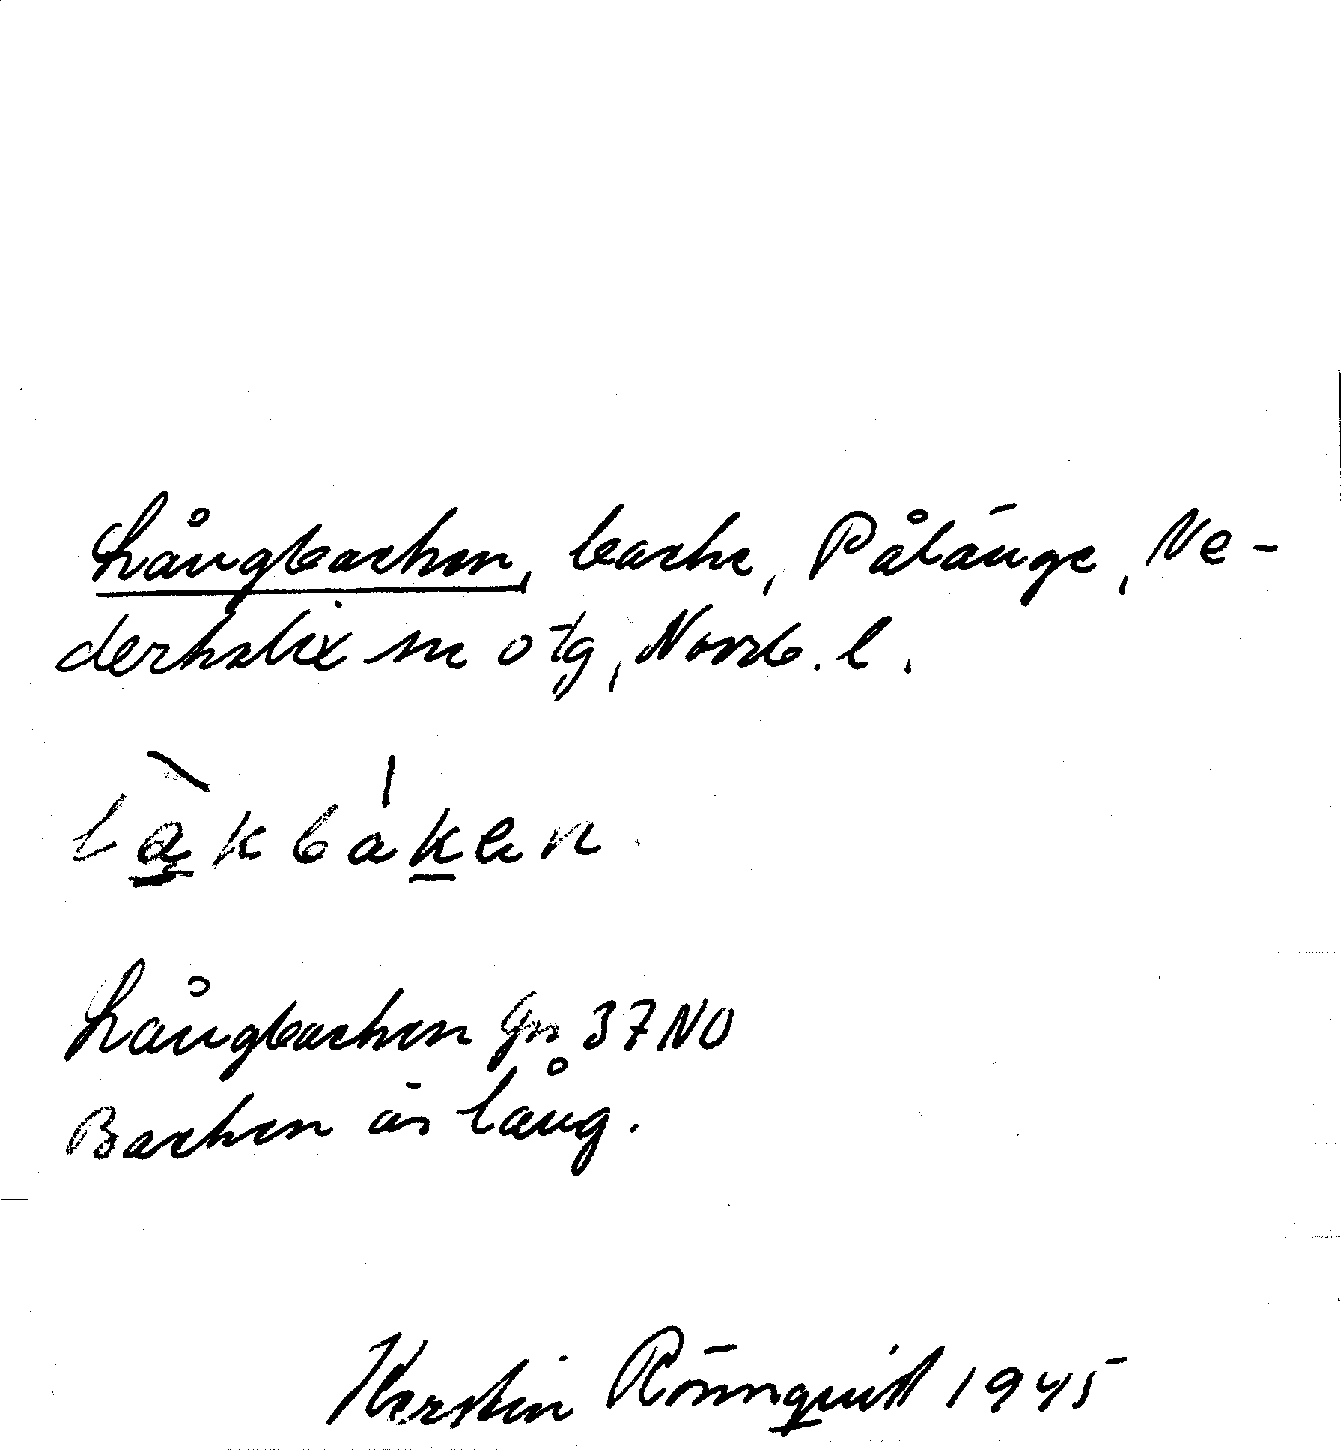 Långbacken, backe, Pålänge, Ne-
derkalix sn otg, Norrb. l.
låkbaken
Långbacken Gn 37 NO
Backen är lång.
Kerstin Rönnquist 1945